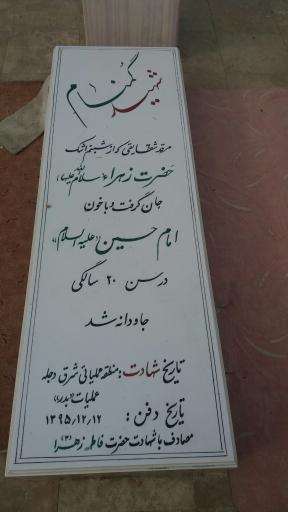 شهید گمنام
مرقد شقایقی که از شبنم اشک
حضرت زهرا (سلام الله علیها)
جان گرفت و با خون
امام حسین (علیه السلام)
در سن ۲۰ سالگی
جاودانه شد
تاریخ شهادت: منطقه عملیاتی شرق دجله
عملیات (بدر)
تاریخ دفن: ۱۳۹۵,۱۲,۱۲
مصادف با شهادت حضرت فاطمه زهرا (س)